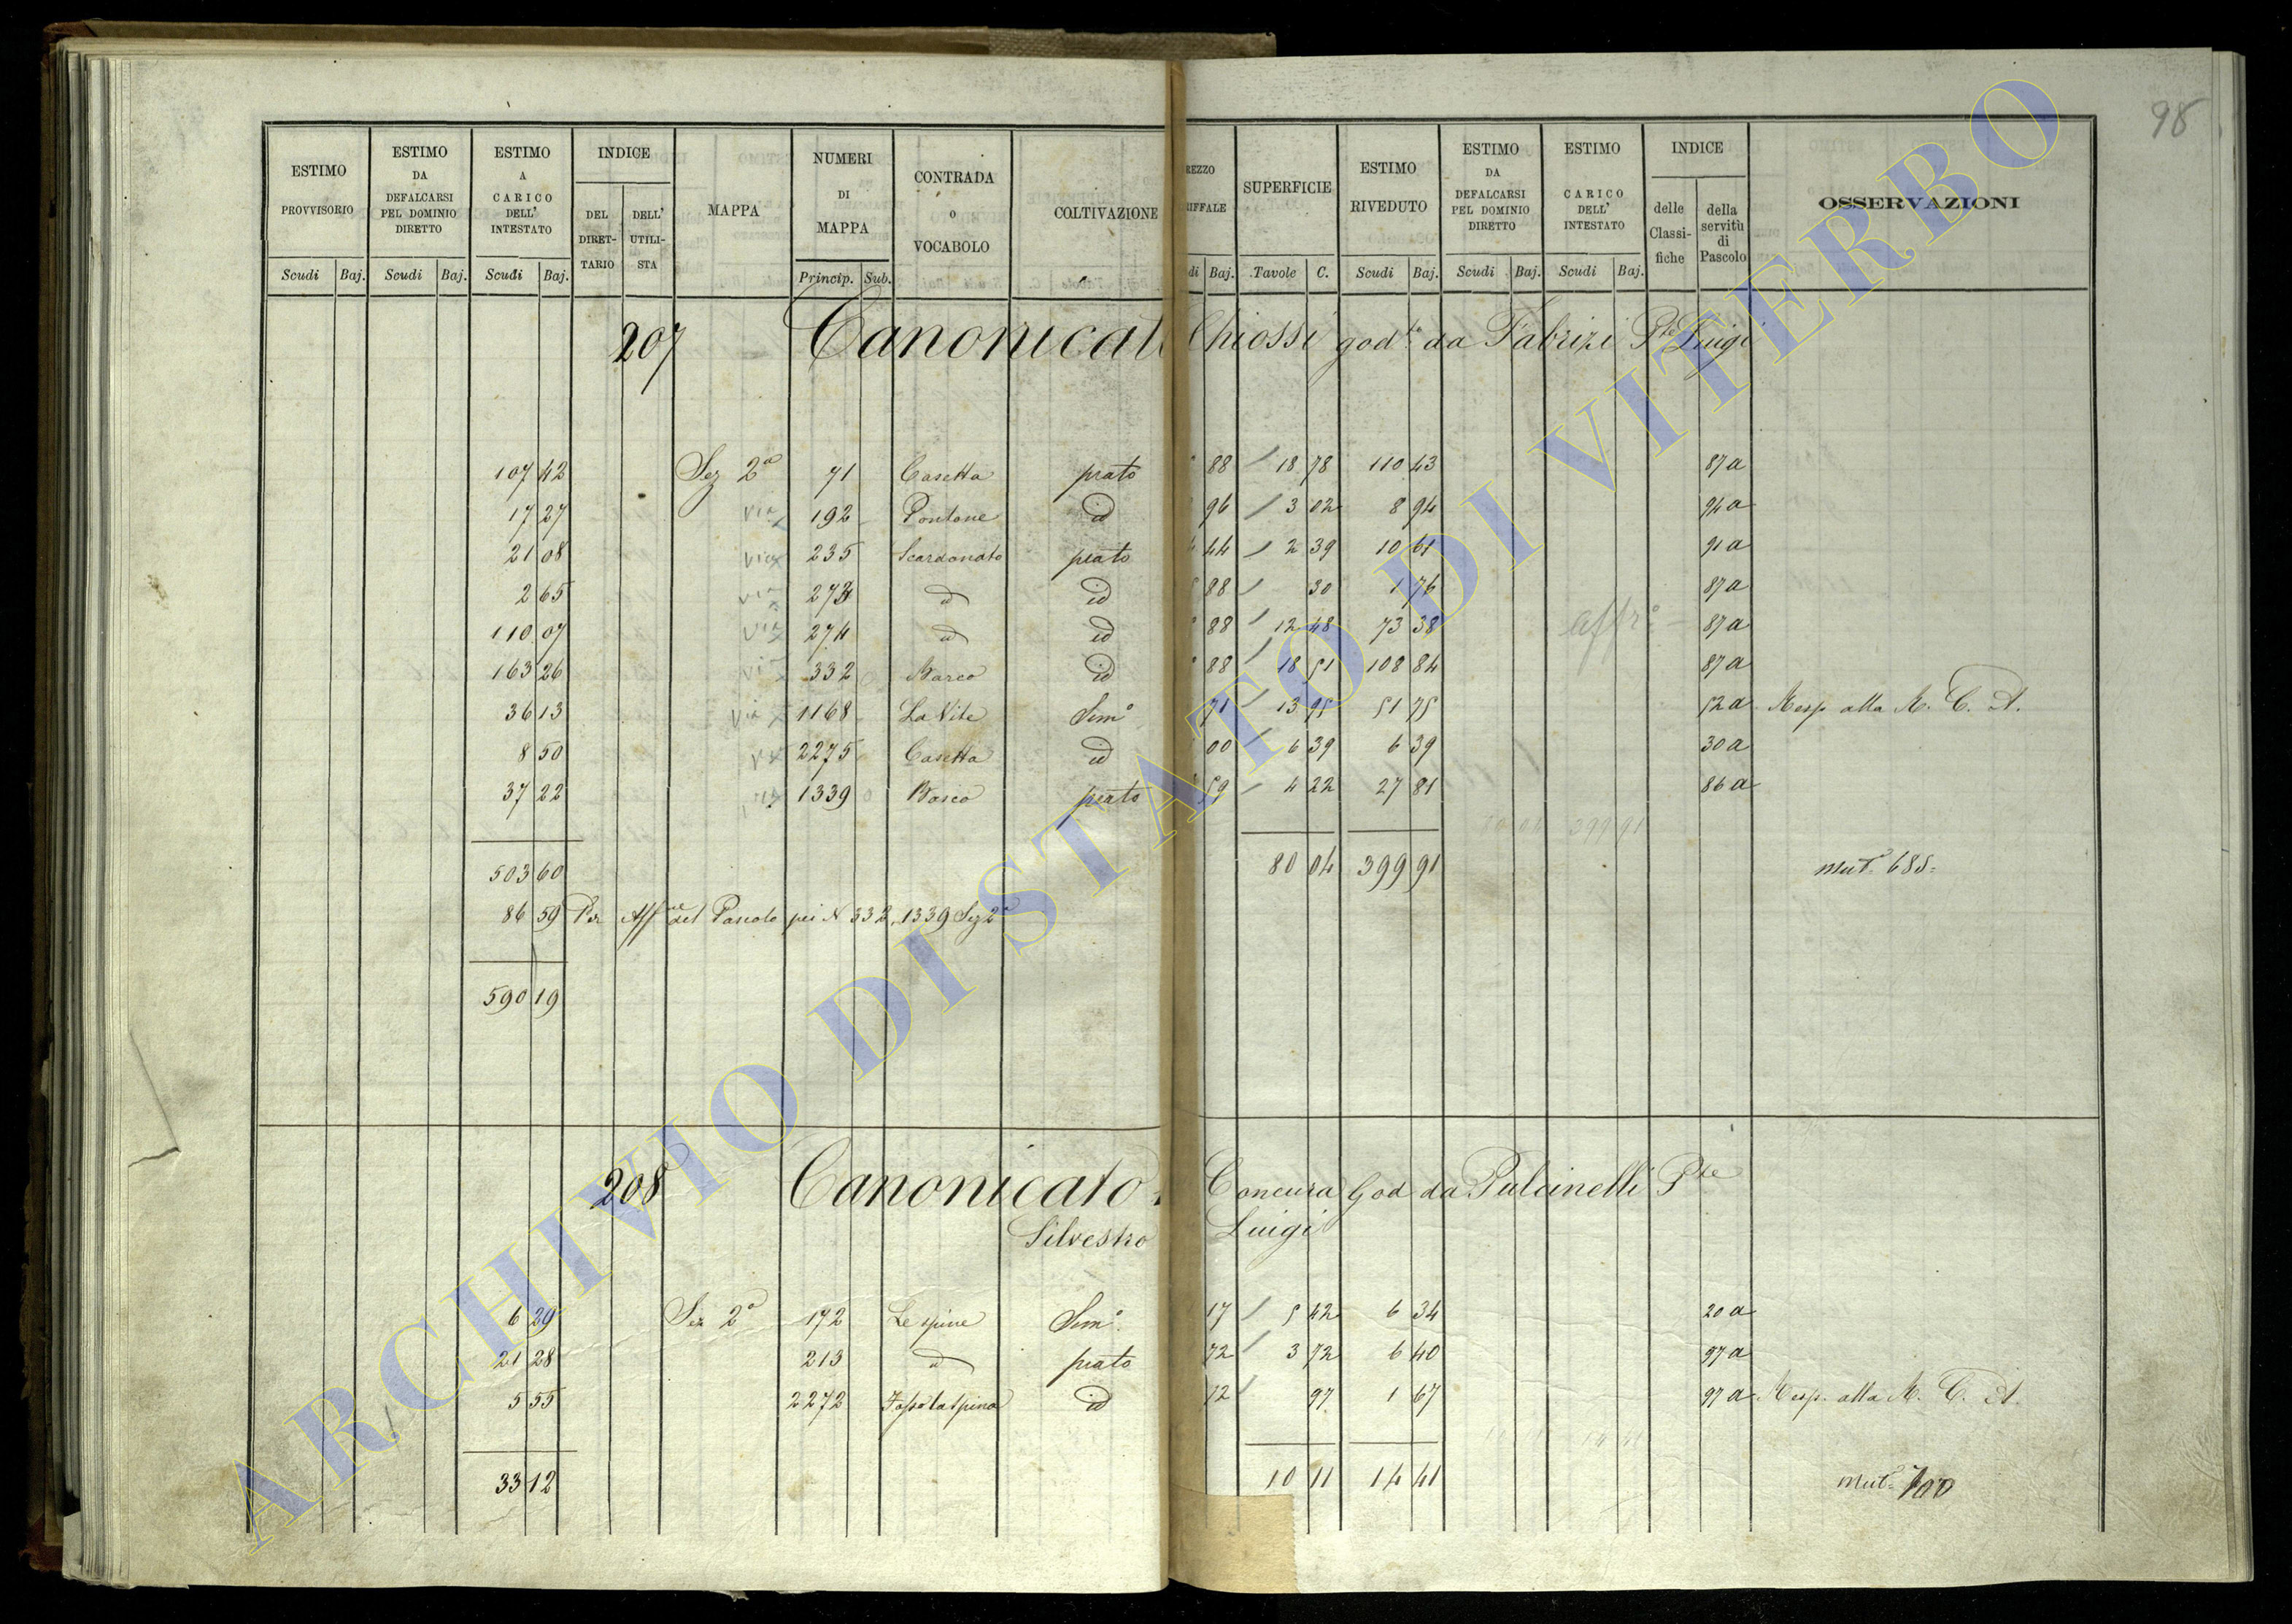 98
ESTIMO PROVVISORIO Scudi Baj. ESTIMO DA DEFALCARSI PEL DOMINIO DIRETTO Scudi Baj. ESTIMO A CARICO DELL' INTESTATO Scudi Baj. INDICE DEL DIRET-TARIO DELL' UTILI-STA MAPPA NUMERI DI MAPPA Princip. Sub. CONTRADA O VOCABOLO COLTIVAZIONE REZZO RIFFALE di Baj. SUPERFICIE Tavole C. ESTIMO RIVEDUTO Scudi Baj. ESTIMO DA DEFALCARSI PEL DOMINIO DIRETTO Scudi Baj. ESTIMO CARICO DELL' INTESTATO Scudi Baj. INDICE delle Classi-fiche della servitù di Pascolo OSSERVAZIONI
207 Canonicat Chiossi god.te da Fabrizi Pte Luigi
107 42 Sez 2a 71 Casetta prato 88 18 78 110 43 87 a
17 27 via 192 Pontone id 96 3 02 8 94 94 a
21 08 via 235 Scardonato prato 44 2 39 10 61 91 a
2 65 via 273 id id 88 30 1 76 87 a
110 07 via 274 id id 88 12 48 73 38 affr.o 87 a
163 26 via 332 Barco id 88 18 51 108 84 87 a
36 13 via 1168 La Vite Sem.o 71 13 95 51 75 52 a Resp. alla R. C. A.
8 50 2275 Casetta id 00 6 39 6 39 30 a
37 22 1339 Barco prato 59 4 22 27 81 86 a
399 91
503 60 80 04 399 91 Mut.e 685
86 59 Per Aff.ne del Pascolo pei N 332, 1339 Sez 2a
590 19
208 Canonicato Concura God da Pulcinelli Pte
Silvestro Luigi
6 29 Sez 2a 172 Le spine Sem.o 17 5 42 6 34 20 a
21 28 213 id prato 72 3 72 6 40 97 a
5 55 2272 Fosso la spina id 72 97 1 67 97 a Resp. alla R. C. A.
33 12 10 11 14 41 Mut.e 700
ARCHIVIO DI STATO DI VITERBO